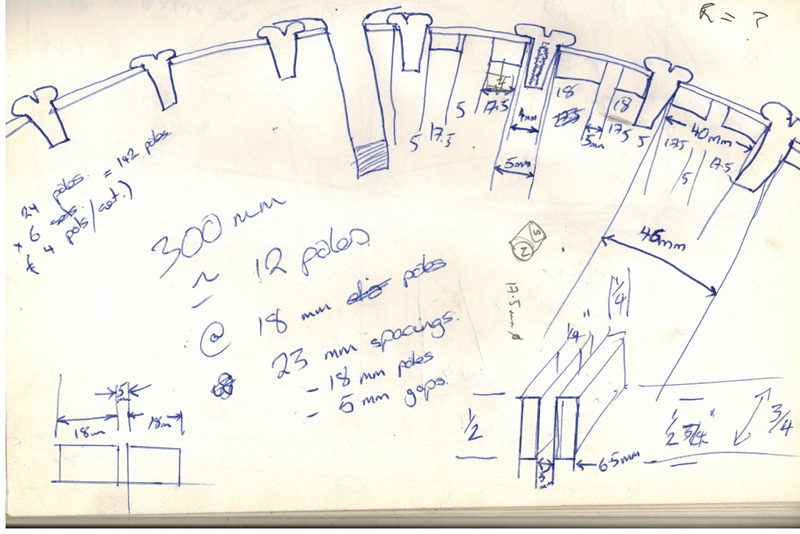 R = ?
5
17.5
5
17.5
4mm
5mm
18
17.5
5mm
18
17.5
5
40mm
17.5
5
17.5
45mm
24 poles. = 142 poles.
x 6 sets.
300 mm
~ 12 poles
@ 18 mm poles
23 mm spacings.
- 18 mm poles
- 5 mm gaps.
N
17.5mm ø
1/4
1/4"
5
18m
18m
1/2
1/2 3/4"
3/4
6.5mm